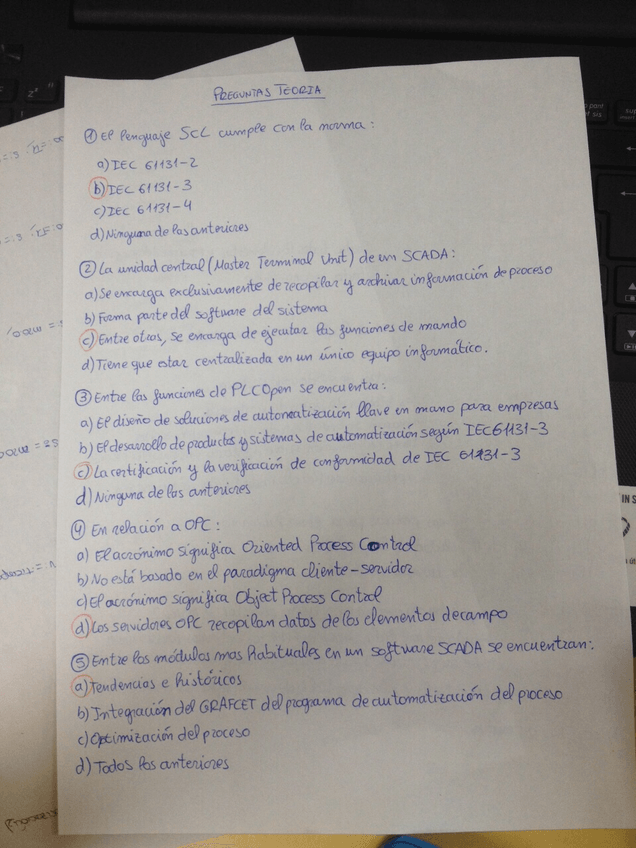 PREGUNTAS TEORIA
① El lenguaje SCL cumple con la norma:
a) IEC 61131-2
b) IEC 61131-3
c) IEC 61131-4
d) Ninguna de las anteriores
② La unidad central (Master Terminal Unit) de un SCADA:
a) Se encarga exclusivamente de recopilar y archivar información de proceso
b) Forma parte del software del sistema
c) Entre otros, se encarga de ejecutar las funciones de mando
d) Tiene que estar centralizada en un único equipo informático.
③ Entre las funciones de PLCOpen se encuentra:
a) El diseño de soluciones de automatización llave en mano para empresas
b) El desarrollo de productos y sistemas de automatización según IEC 61131-3
c) La certificación y la verificación de conformidad de IEC 61131-3
d) Ninguna de las anteriores
④ En relación a OPC:
a) El acrónimo significa Oriented Process Control
b) No está basado en el paradigma cliente-servidor
c) El acrónimo significa Object Process Control
d) Los servidores OPC recopilan datos de los elementos de campo
⑤ Entre los módulos mas habituales en un software SCADA se encuentran:
a) Tendencias e históricos
b) Integración del GRAFCET del programa de automatización del proceso
c) Optimización del proceso
d) Todos los anteriores